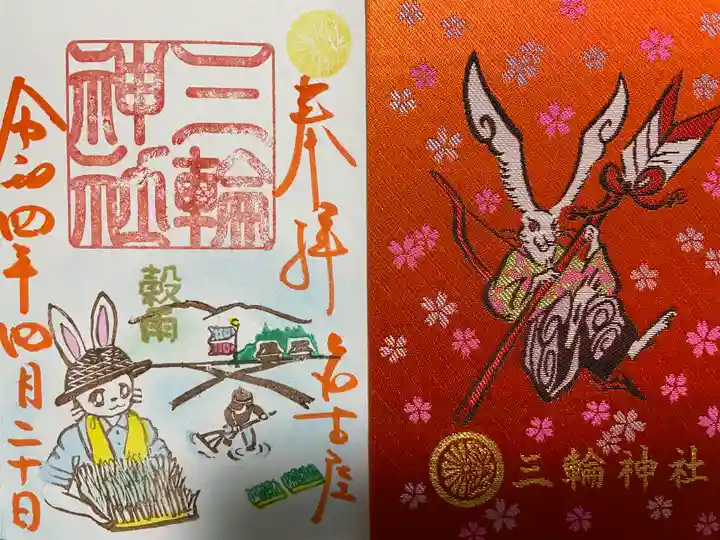 奉拝
名古屋
三輪
神社
穀雨
令和四年四月二十日
三輪神社